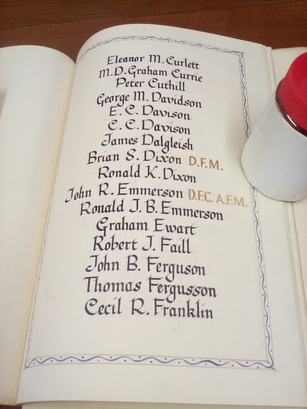 Eleanor M. Curlett
M.D. Graham Currie
Peter Cuthill
George M. Davidson
E. C. Davison
C. C. Davison
James Dalgleish
Brian S. Dixon D.F.M.
Ronald K. Dixon
John R. Emmerson D.F.C. A.F.M.
Ronald J.B. Emmerson
Graham Ewart
Robert J. Faill
John B. Ferguson
Thomas Fergusson
Cecil R. Franklin